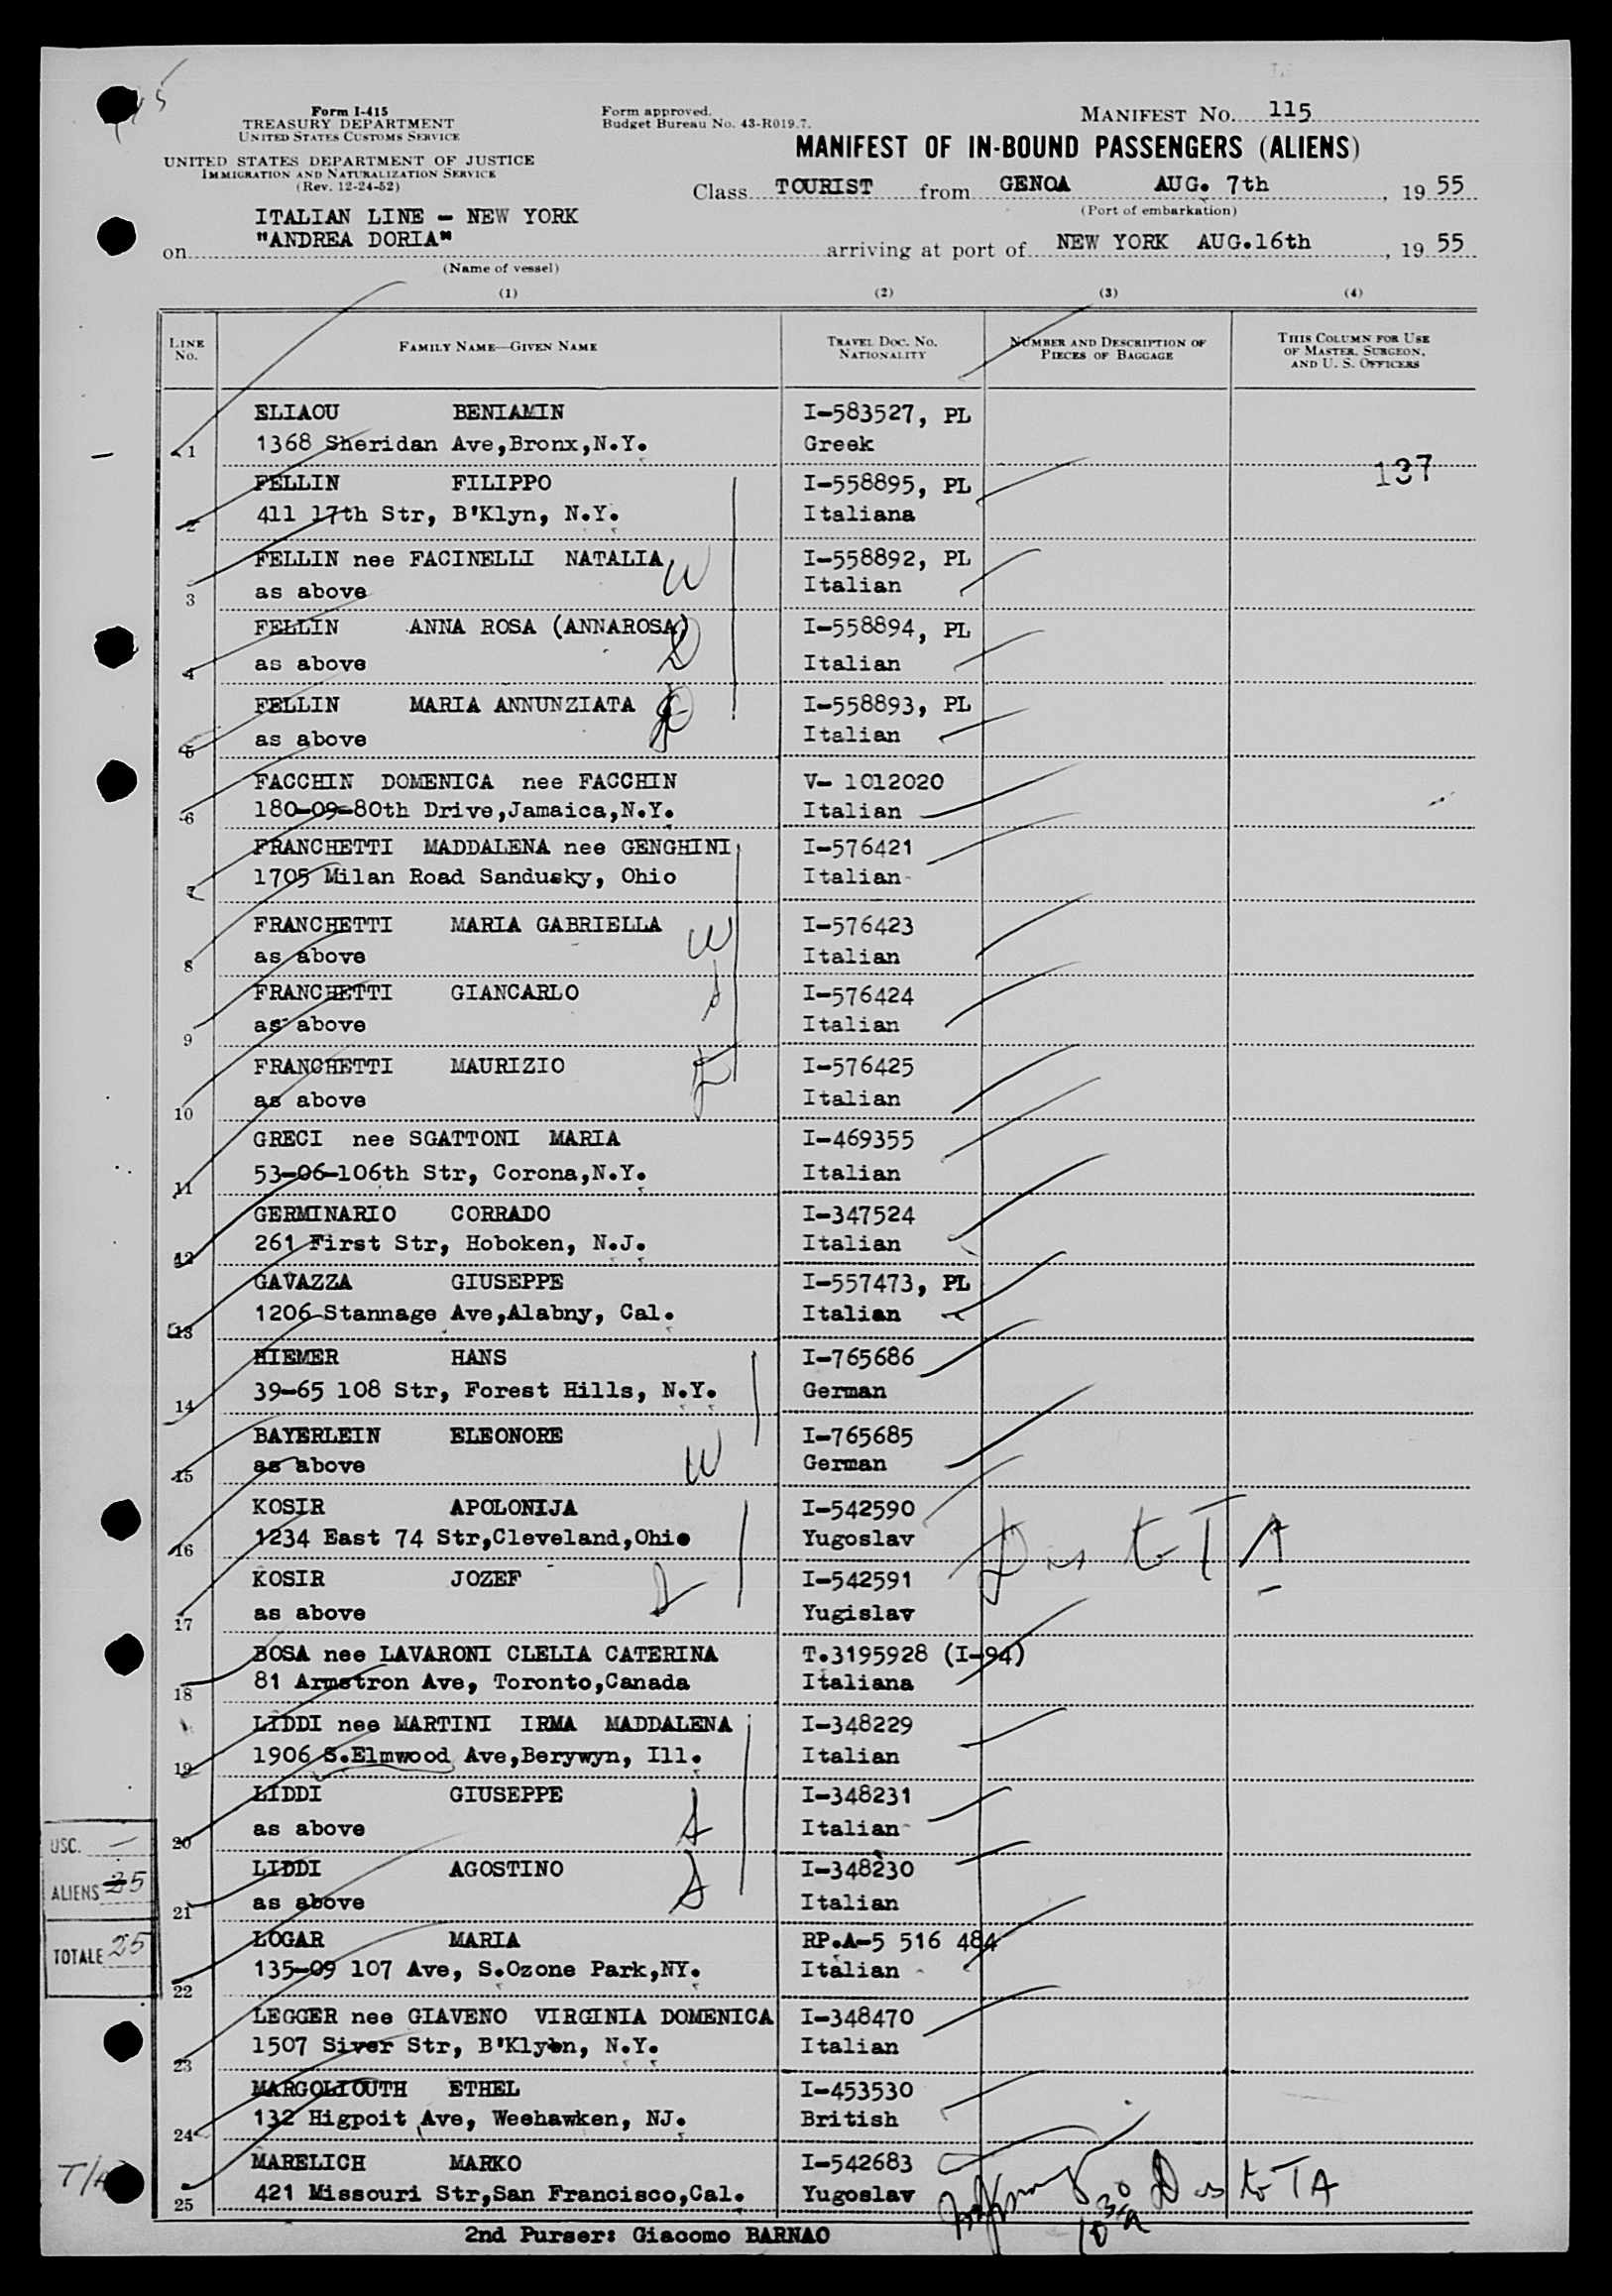 Form I-415
TREASURY DEPARTMENT
UNITED STATES CUSTOMS SERVICE
UNITED STATES DEPARTMENT OF JUSTICE
IMMIGRATION AND NATURALIZATION SERVICE
(Rev. 12-24-52)
Form approved.
Budget Bureau No. 43-R019.7.
MANIFEST NO. 115
MANIFEST OF IN-BOUND PASSENGERS (ALIENS)
Class TOURIST from GENOA AUG. 7th, 19 55
(Port of embarkation)
ITALIAN LINE - NEW YORK
on "ANDREA DORIA" arriving at port of NEW YORK AUG.16th, 19 55
(Name of vessel)
(1) (2) (3) (4)
LINE NO.
FAMILY NAME—GIVEN NAME
TRAVEL DOC. NO. NATIONALITY
NUMBER AND DESCRIPTION OF PIECES OF BAGGAGE
THIS COLUMN FOR USE OF MASTER, SURGEON, AND U. S. OFFICERS
ELIAOU BENIAMIN I-583527, PL
1 1368 Sheridan Ave,Bronx,N.Y. Greek
137
FELLIN FILIPPO I-558895, PL
2 411 17th Str, B'Klyn, N.Y. Italiana
FELLIN nee FACINELLI NATALIA W I-558892, PL
3 as above Italian
FELLIN ANNA ROSA (ANNAROSA) I-558894, PL
4 as above Italian
FELLIN MARIA ANNUNZIATA I-558893, PL
5 as above Italian
FACCHIN DOMENICA nee FACCHIN V- 1012020
6 180-09-80th Drive,Jamaica,N.Y. Italian
FRANCHETTI MADDALENA nee GENGHINI I-576421
7 1705 Milan Road Sandusky, Ohio Italian
FRANCHETTI MARIA GABRIELLA W I-576423
8 as above Italian
FRANCHETTI GIANCARLO I-576424
9 as above Italian
FRANCHETTI MAURIZIO I-576425
10 as above Italian
GRECI nee SGATTONI MARIA I-469355
11 53-06-106th Str, Corona,N.Y. Italian
GERMINARIO CORRADO I-347524
12 261 First Str, Hoboken, N.J. Italian
GAVAZZA GIUSEPPE I-557473, PL
13 1206 Stannage Ave,Alabny, Cal. Italian
HIEMER HANS I-765686
14 39-65 108 Str, Forest Hills, N.Y. German
BAYERLEIN ELEONORE W I-765685
15 as above German
KOSIR APOLONIJA I-542590
16 1234 East 74 Str,Cleveland,Ohio Yugoslav
KOSIR JOZEF I-542591
17 as above Yugislav
BOSA nee LAVARONI CLELIA CATERINA T.3195928 (I-94)
18 81 Armstron Ave, Toronto,Canada Italiana
LIDDI nee MARTINI IRMA MADDALENA I-348229
19 1906 S.Elmwood Ave,Berywyn, Ill. Italian
LIDDI GIUSEPPE I-348231
20 as above Italian
LIDDI AGOSTINO I-348230
21 as above Italian
LOGAR MARIA RP.A-5 516 484
22 135-09 107 Ave, S.Ozone Park,NY. Italian
LEGGER nee GIAVENO VIRGINIA DOMENICA I-348470
23 1507 Siver Str, B'Klyn, N.Y. Italian
MARGOLIOUTH ETHEL I-453530
24 132 Higpoit Ave, Weehawken, NJ. British
MARELICH MARKO I-542683
25 421 Missouri Str,San Francisco,Cal. Yugoslav
to TA
USC. -
ALIENS 25
TOTALE 25
2nd Purser: Giacomo BARNAO